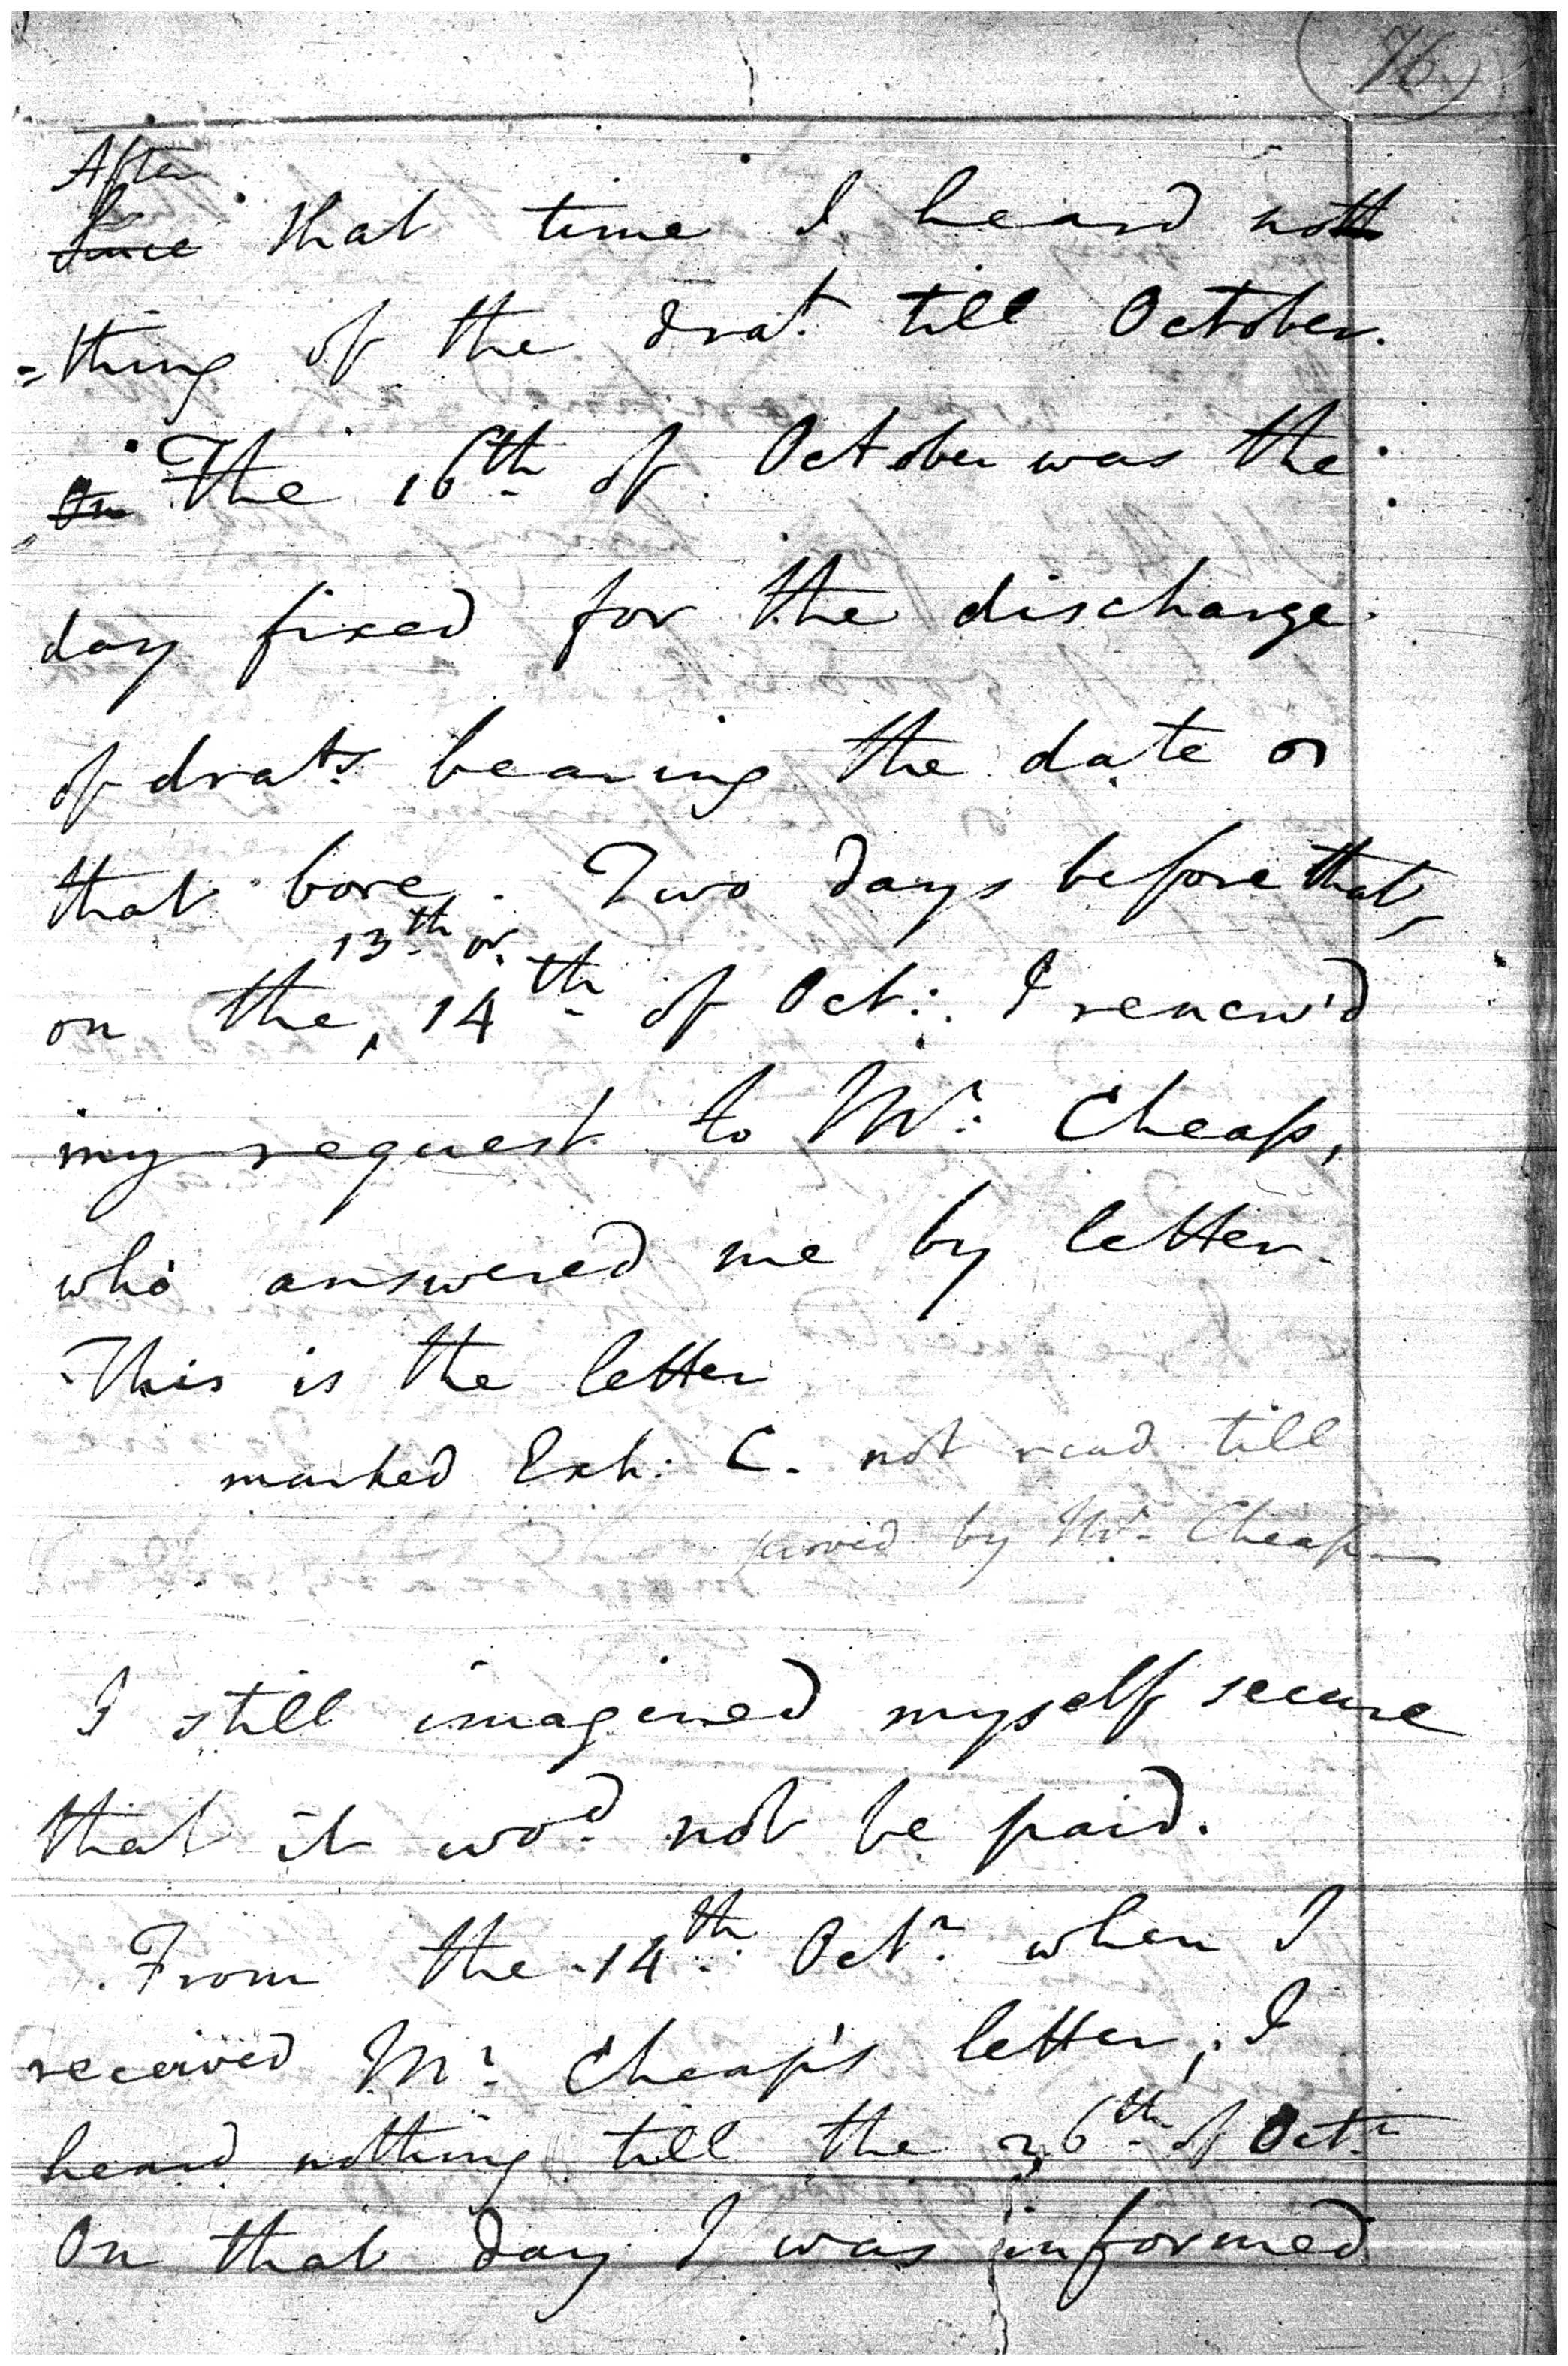 76
After
Since that time I heard noth
=thing of the drat. till October.
On The 16th of October was the
day fixed for the discharge
of drats bearing the date
that bore. Two days before that,
13th or
on the, 14th of Oct: I renew'd
my request to Mr: Cheap,
who answered me by letter.
This is the letter
marked Exh: C. not read till
proved by Mr. Cheap
I still imagined myself secure
that it wod. not be paid.
From the 14th Octr. when I
received Mr. Cheap's letter, I
heard nothing till the 26th of Octr.
On that day I was informed